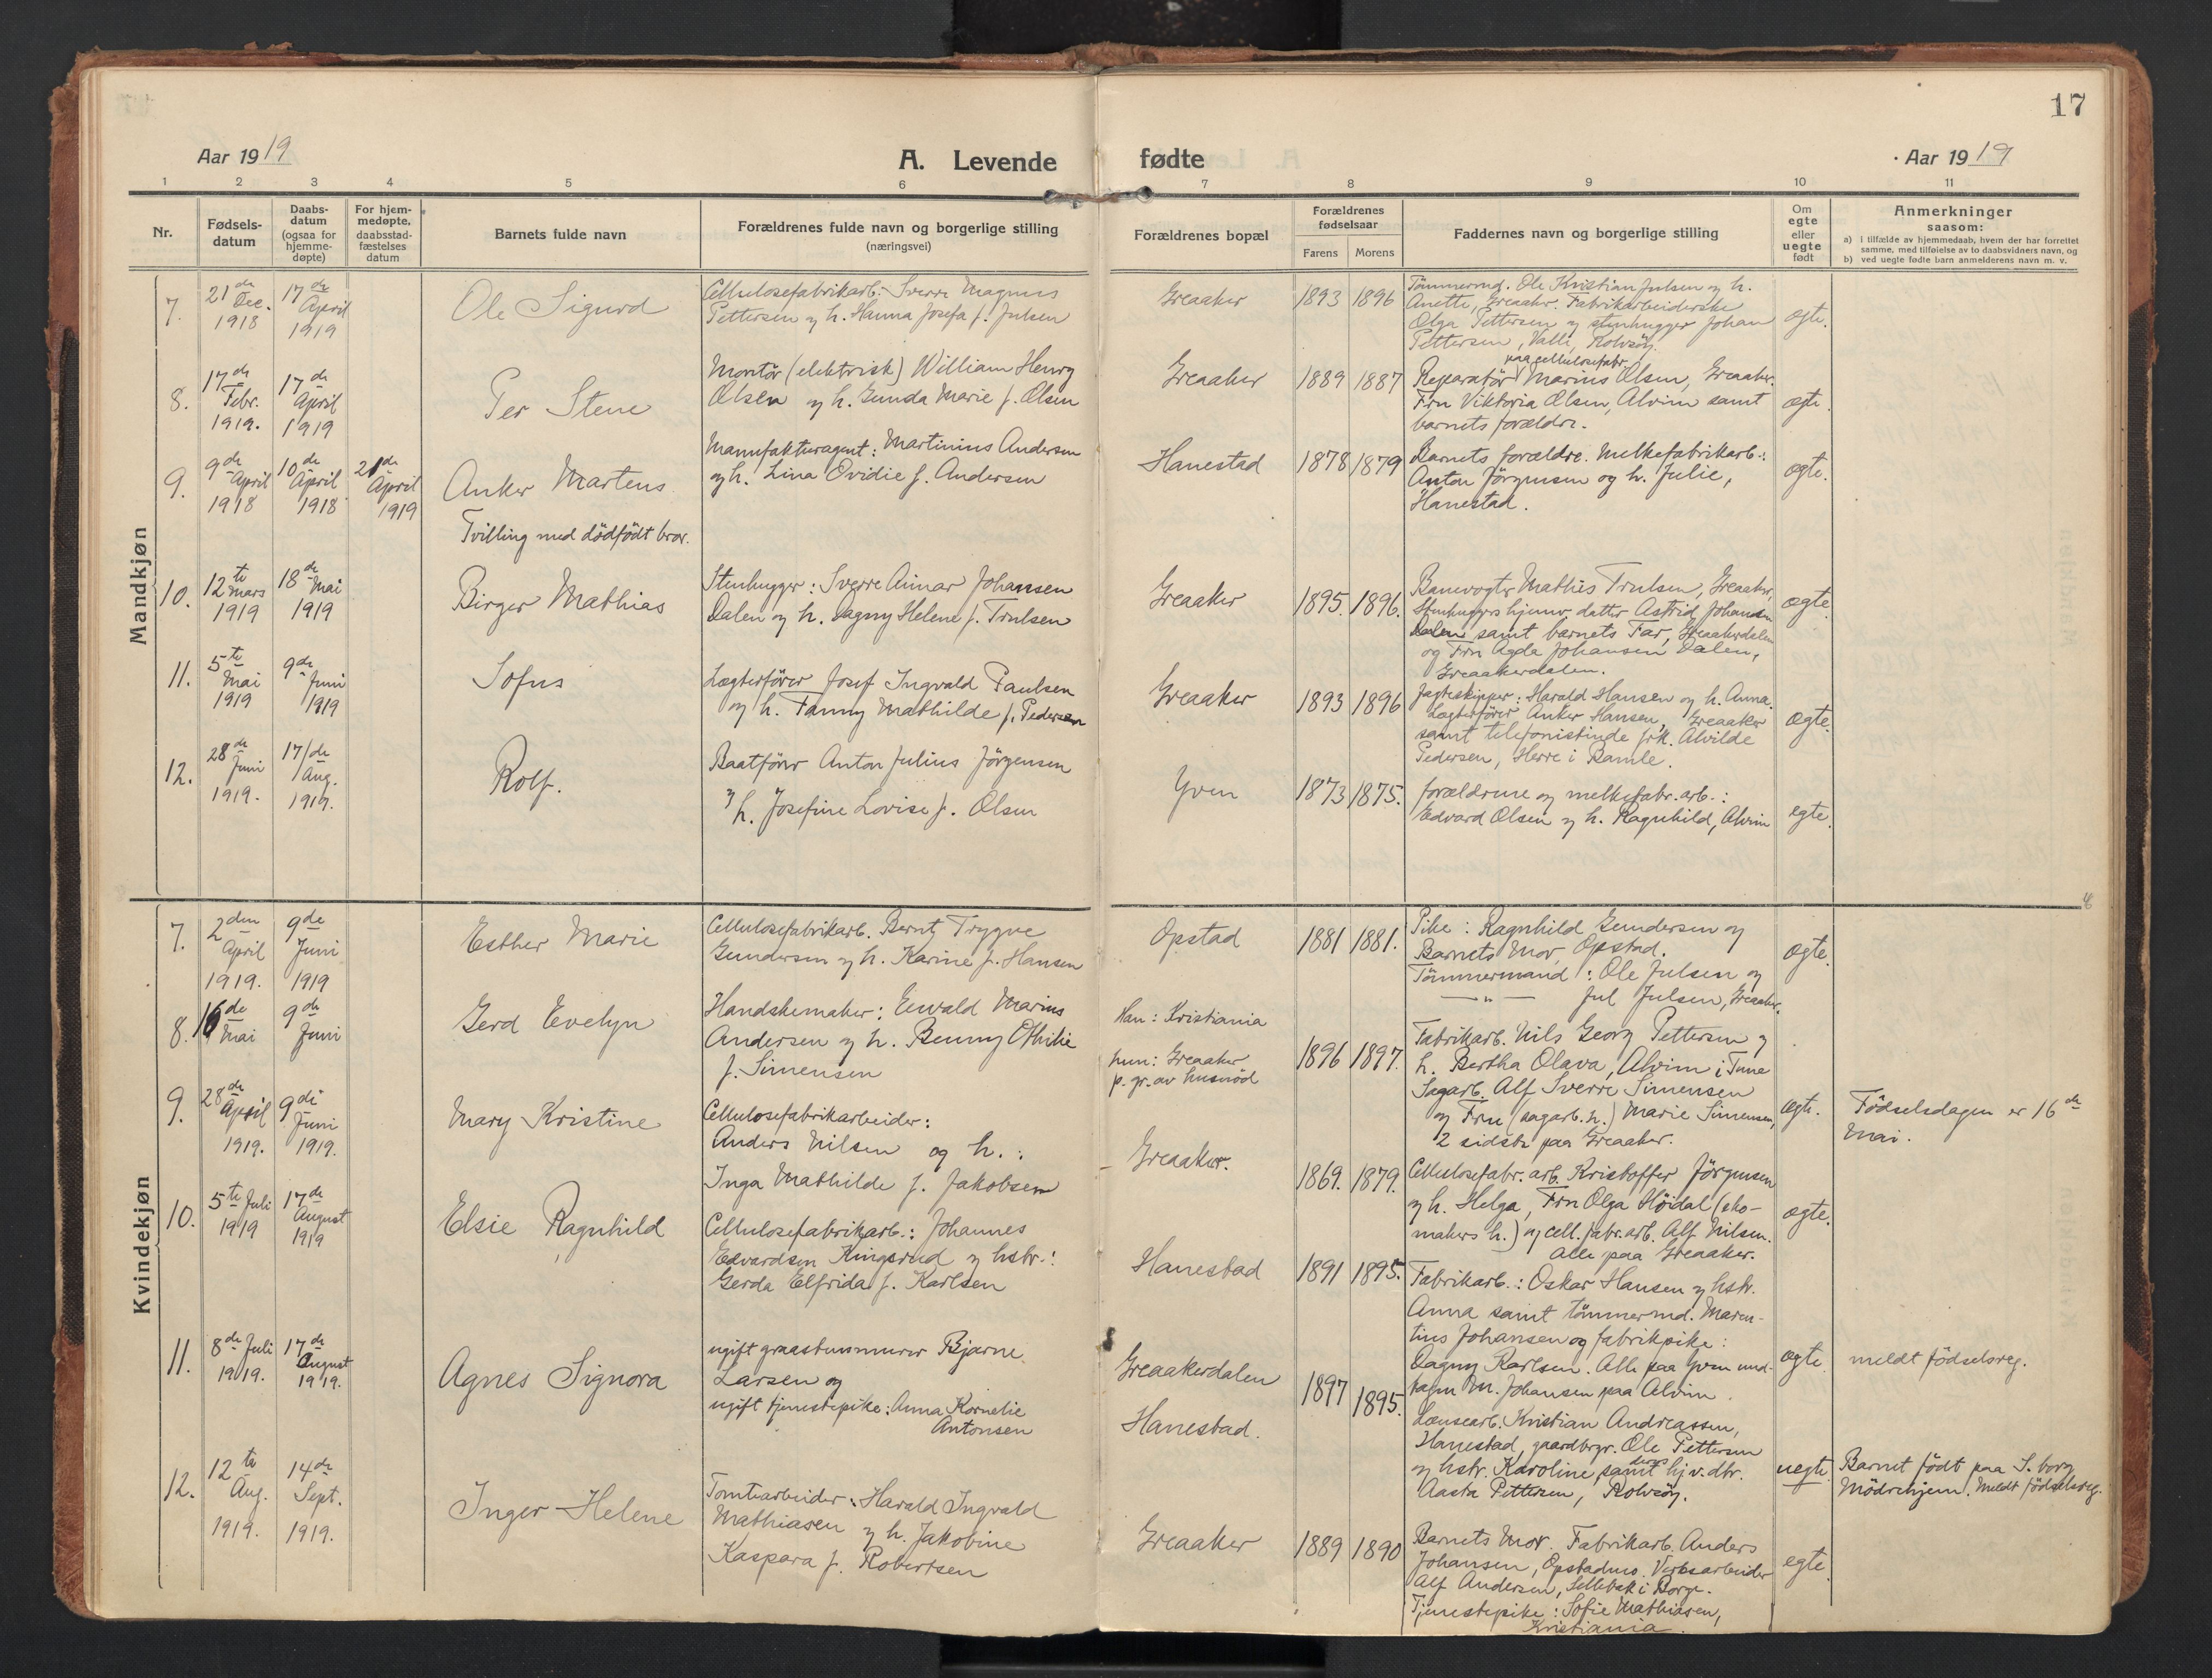 17
Aar 1919
A. Levende fødte
Aar 1919
1 2 3 4 5 6 7 8 9 10 11
Nr.
Fødsels-
datum
Daabs-
datum
(ogsaa for
hjemme-
døpte)
For hjem-
medøpte,
daabsstad-
fæstelses
datum
Barnets fulde navn
Forældrenes fulde navn og borgerlige stilling
(næringsvei)
Forældrenes bopæl
Forældrenes
fødselsaar
Farens Morens
Faddernes navn og borgerlige stilling
Om
egte
eller
uegte
født
Anmerkninger
saasom:
a) i tilfælde av hjemmedaab, hvem der har forrettet
samme, med tilføielse av to daabsvidners navn, og
b) ved uegte fødte barn anmelderens navn m. v.
Mandkjøn
7.
21de
Dec.
1918
17de
April
1919
Ole Sigurd
Cellulosefabrikarb. Sverre Magnus
Pettersen og h. Hanna Josefa f. Julsen
Greaaker
1893 1896
Tömmermd. Ole Kristian Julsen og h.
Anette, Greaaker. Fabrikarbeiderske
Olga Pettersen og stenhugger Johan
Pettersen, Valle, Rolvsöy.
egte.
8.
17de
Febr.
1919.
17de
April
1919
Per Stene
Montör (elektrisk) William Henry
Olsen og h. Gunda Marie f. Olsen
Greaaker
1889 1887
paa cellulosefabr.
Reparatör Marius Olsen, Greaaker.
Fru Viktoria Olsen, Alvim samt
barnets forældre.
egte.
9.
9de
April
1918
10de
April
1918
21de
April
1919
Anker Martens
Tvilling med dödfödt bror.
Manufakturagent: Martinius Andersen
og h. Lina Ovidie f. Andersen
Hanestad
1878 1879
Barnets forældre. Melkefabrikarb.:
Anton Jörgensen og h. Julie,
Hanestad.
egte.
10.
12te
Mars
1919
18de
Mai
1919
Birger Mathias
Stenhugger: Sverre Aimar Johansen
Dalen og h. Dagny Helene f. Trulsen
Greaaker
1895. 1896.
Banevogter Mathis Trulsen, Greaaker,
Stenhuggers hjemv. datter Astrid Johansen
Dalen samt barnets Far, Greaakerdalen
og Fru Agda Johansen Dalen,
Greaakerdalen.
egte
11.
5te
Mai
1919
9de
Juni
1919
Sofus
Lægterförer Josef Ingvald Paulsen
og h. Fanny Mathilde f. Pedersen
Greaaker
1893 1896
Jagteskipper: Harald Hansen og h. Anna.
Lægterförer Anker Hansen, Greaaker
samt telefonistinde frk. Alvilde
Pedersen, Herre i Bamle.
egte.
12.
28de
Juni
1919.
17/de
Aug.
1919.
Rolf.
Baatförer Anton Julius Jörgensen
og h. Josefine Lovise f. Olsen
Yven
1873 1875.
forældrene og melkefabr. arb.:
Edvard Olsen og h. Ragnhild, Alvim
egte.
Kvindekjøn
7.
2den
April
1919.
9de
Juni
1919
Esther Marie
Cellulosefabrikarb. Bernt Trygve
Gundersen og h. Karine f. Hansen
Opstad
1881 1881.
Pike: Ragnhild Gundersen og
Barnets Mor, Opstad.
Tömmermand: Ole Julsen og
— " — Jul Julsen, Greaaker.
egte.
8.
16de
Mai
9de
Juni
Gerd Evelyn
Handskemaker: Ewald Marius
Andersen og h. Benny Othilie
f. Simensen
Han: Kristiania
hun: Greaaker
p. gr. av husnöd
1896 1897.
Fabrikarb. Nils Georg Pettersen og
h. Bertha Olava, Alvim i Tune
Sagarb. Alf Sverre Simensen
og Fru (sagarb. h.) Marie Simensen,
2 sidste paa Greaaker.
egte.
Födselsdagen er 16de
Mai.
9.
28de
April
1919.
9de
Juni
1919.
Mary Kristine
Cellulosefabrikarbeider:
Anders Nilsen og h.:
Inga Mathilde f. Jakobsen
Greaaker.
1869. 1879.
Cellulosefabr. arb. Kristoffer Jörgensen
og h. Helga, Fru Olga Höidal (sko-
makers h.) og cell. fabr. arb. Alf Nilsen.
Alle paa Greaaker.
egte.
10.
5te Juli
1919
17de
August
1919
Elsie Ragnhild
Cellulosefabrikarb.: Johannes
Edvardsen Kingsrud og hstr.:
Gerda Elfrida f. Karlsen
Hanestad
1891 1895.
Fabrikarb.: Oskar Hansen og hstr.
Anna samt tömmermd. Maren-
tius Johansen og fabrikpike:
Dagny Karlsen. Alle paa Yven und-
tagen M. Johansen paa Alvim.
egte
meldt födselsreg.
11.
8de Juli
1919.
17de
August
1919.
Agnes Signora
ugift graastenmurer Bjarne
Larsen og
ugift tjenestepike: Anna Kornelie
Antonsen
Greaakerdalen
Hanestad.
1897 1895.
Lænsearb. Kristian Andreassen,
Hanestad, gaardbrgr. Ole Pettersen
og hstr. Karoline samt deres hjv. dtr.
Aasta Pettersen, Rolvsöy.
uegte.
Barnet födt paa S.borg
Mödrehjem. Meldt födselsreg.
12.
12te
Aug.
1919.
14de
Sept.
1919.
Inger Helene
Tomtearbeider: Harald Ingvald
Mathiasen og h. Jakobine
Kaspara f. Robertsen
Greaaker
1889 1890
Barnets Mor. Fabrikarb. Anders
Johansen, Opstadmo. Verksarbeider
Alf Andersen, Sellebak i Borge.
Tjenestepike: Sofie Mathiasen,
Kristiania.
egte.